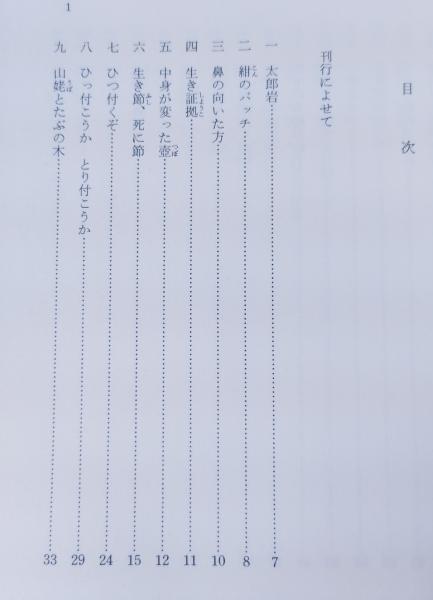 目次
刊行によせて
一 太郎岩 7
二 紺のパッチ 8
三 鼻の向いた方 10
四 生き証拠 11
五 中身が変った壺 12
六 生き節、死に節 15
七 ひつ付くぞ 24
八 ひっ付こうか とり付こうか 29
九 山姥とたぶの木 33
1